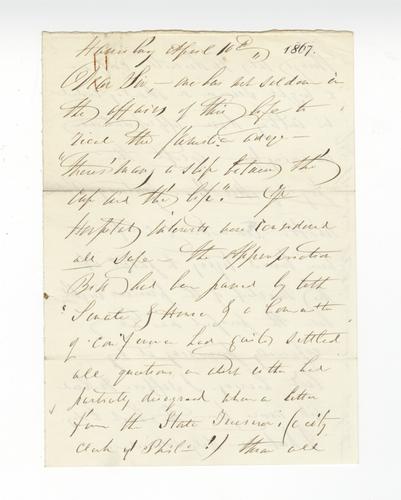 Harrisburg April 10th, 1867.
Dear Sir, — one has not seldom in
the affairs of this life to
recal the familiar adage —
"there's many a slip between the
Cup and the lip." — Our
Hospital interests were considered
all safe — the Appropriation
Bill had been passed by both
Senate & House & a Committee
of conference had quietly settled
all questions on which either had
partially disagreed when a letter
from the State Treasurer, (a city
clerk of Phila!) threw all